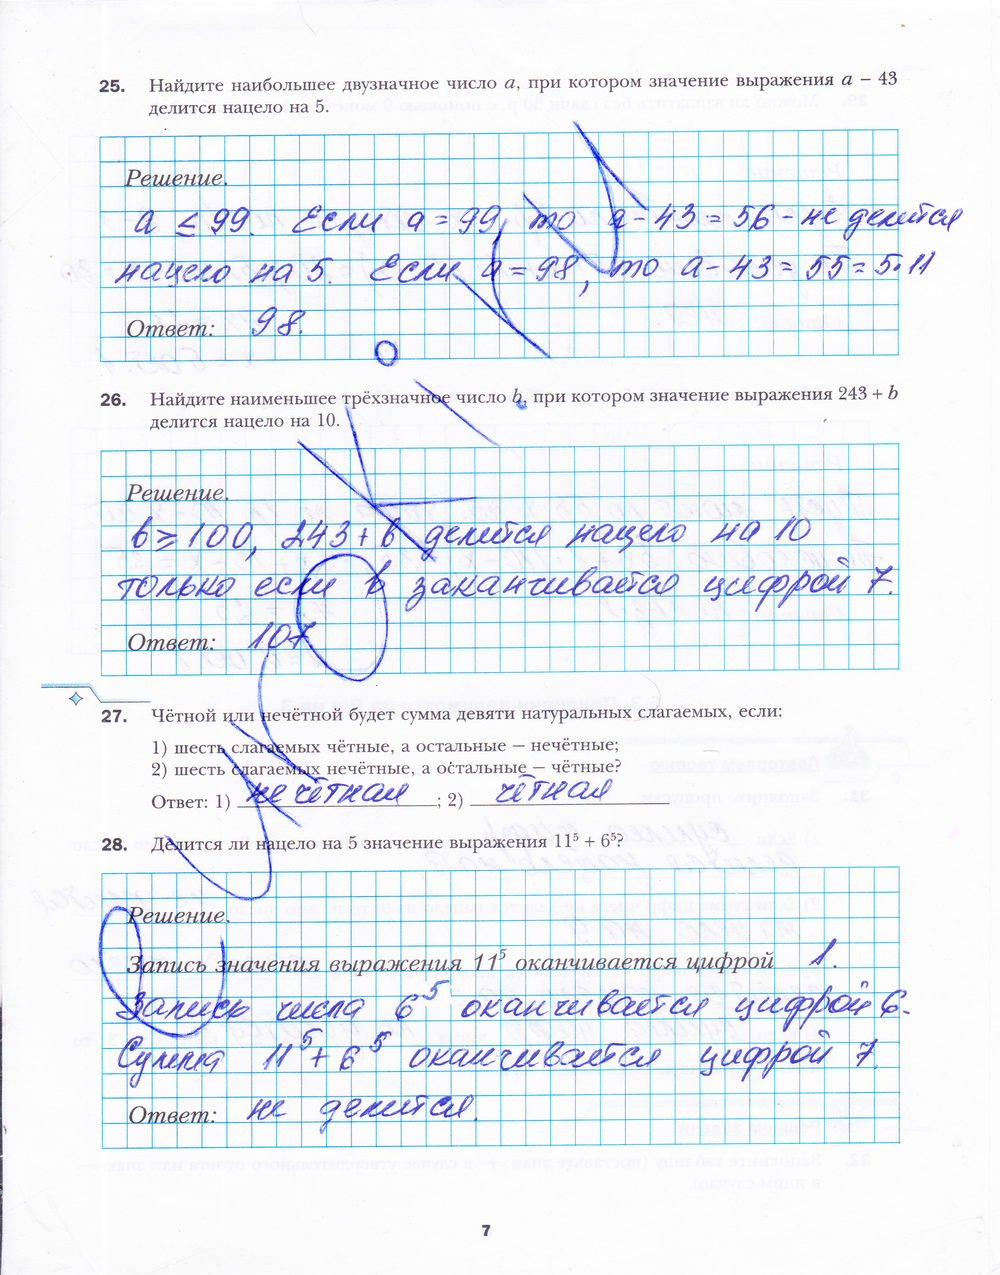 25. Найдите наибольшее двузначное число a, при котором значение выражения a − 43
делится нацело на 5.
Решение.
a ≤ 99. Если a = 99, то a − 43 = 56 − не делится
нацело на 5. Если a = 98, то a − 43 = 55 = 5·11
Ответ: 98.
26. Найдите наименьшее трёхзначное число b, при котором значение выражения 243 + b
делится нацело на 10.
Решение.
b ≥ 100, 243 + b делится нацело на 10
только если b заканчивается цифрой 7.
Ответ: 107
27. Чётной или нечётной будет сумма девяти натуральных слагаемых, если:
1) шесть слагаемых чётные, а остальные — нечётные;
2) шесть слагаемых нечётные, а остальные — чётные?
Ответ: 1) нечётная; 2) чётная
28. Делится ли нацело на 5 значение выражения 11⁵ + 6⁵?
Решение.
Запись значения выражения 11⁵ оканчивается цифрой 1.
Запись числа 6⁵ оканчивается цифрой 6.
Сумма 11⁵ + 6⁵ оканчивается цифрой 7.
Ответ: не делится.
7